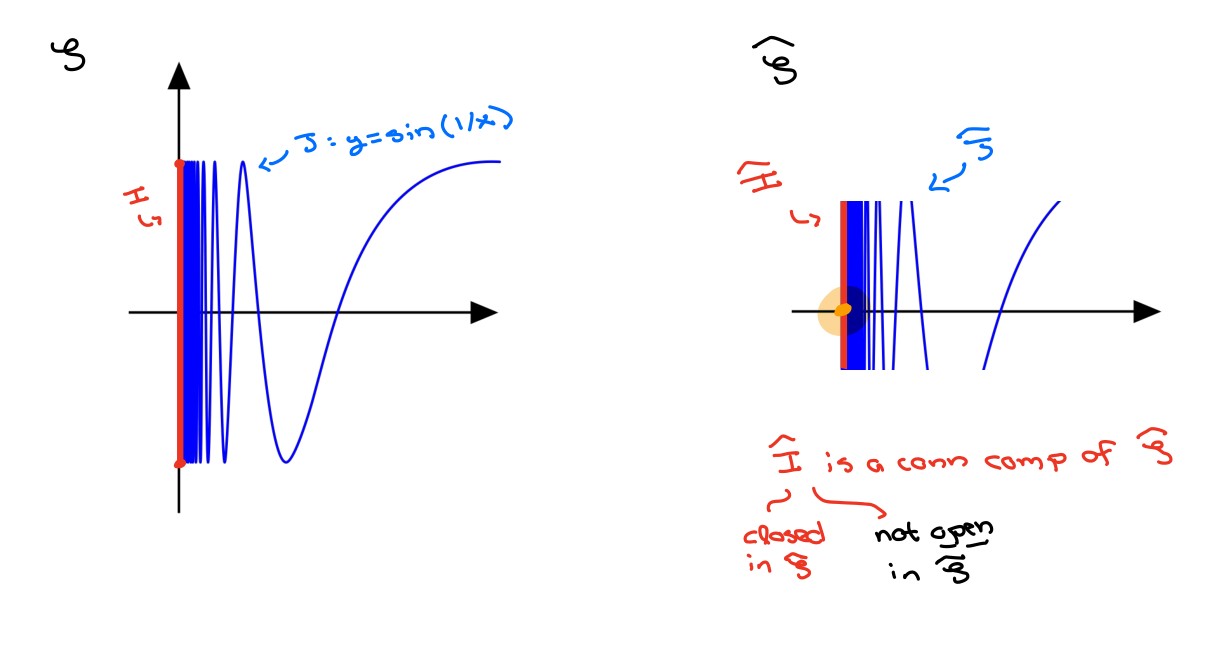 S
J : y = sin(1/x)
I
Ŝ
Ĵ
Î
Î is a conn comp of Ŝ
closed
in Ŝ
not open
in Ŝ